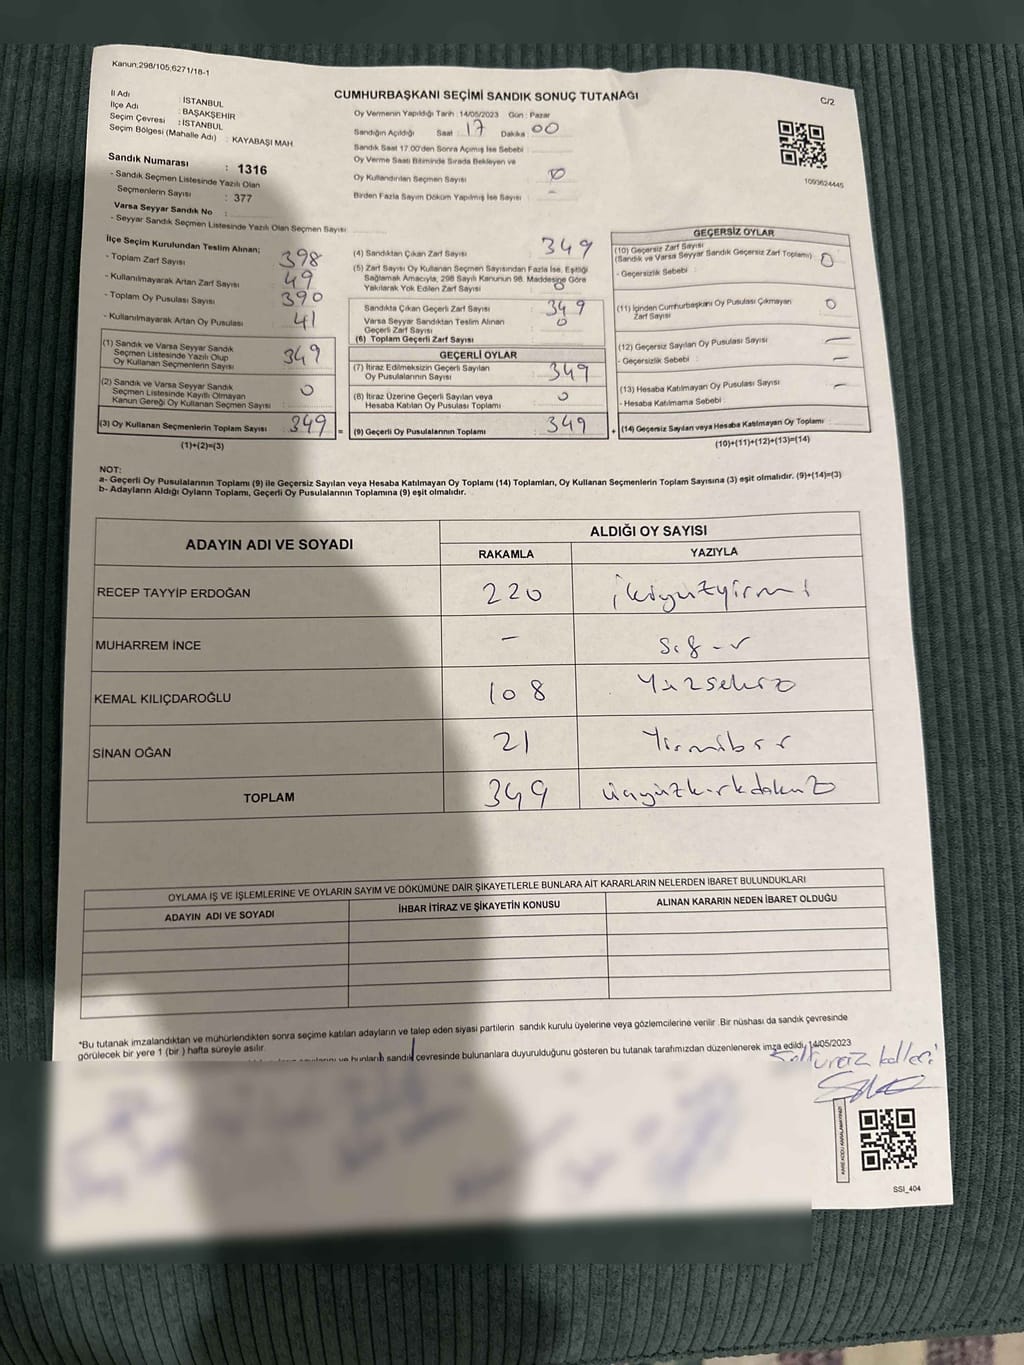 Kanun;298/105,6271/18-1
CUMHURBAŞKANI SEÇİMİ SANDIK SONUÇ TUTANAĞI
C/2
İl Adı : İSTANBUL
İlçe Adı : BAŞAKŞEHİR
Seçim Çevresi : İSTANBUL
Seçim Bölgesi (Mahalle Adı) : KAYABAŞI MAH.
Sandık Numarası : 1316
- Sandık Seçmen Listesinde Yazılı Olan
Seçmenlerin Sayısı : 377
Varsa Seyyar Sandık No :
- Seyyar Sandık Seçmen Listesinde Yazılı Olan Seçmen Sayısı
Oy Vermenin Yapıldığı Tarih :14/05/2023 Gün : Pazar
Sandığın Açıldığı Saat : 17 Dakika : 00
Sandık Saat 17.00'den Sonra Açılmış İse Sebebi :
Oy Verme Saati Bitiminde Sırada Bekleyen ve
Oy Kullandırılan Seçmen Sayısı
Birden Fazla Sayım Döküm Yapılmış İse Sayısı : -
1093624445
İlçe Seçim Kurulundan Teslim Alınan;
- Toplam Zarf Sayısı 398
- Kullanılmayarak Artan Zarf Sayısı 49
- Toplam Oy Pusulası Sayısı 390
- Kullanılmayarak Artan Oy Pusulası 41
(1) Sandık ve Varsa Seyyar Sandık
Seçmen Listesinde Yazılı Olup
Oy Kullanan Seçmenlerin Sayısı 349
(2) Sandık ve Varsa Seyyar Sandık
Seçmen Listesinde Kayıtlı Olmayan
Kanun Gereği Oy Kullanan Seçmen Sayısı 0
(3) Oy Kullanan Seçmenlerin Toplam Sayısı 349 =
(1)+(2)=(3)
(4) Sandıktan Çıkan Zarf Sayısı 349
(5) Zarf Sayısı Oy Kullanan Seçmen Sayısından Fazla İse, Eşitliği
Sağlamak Amacıyla, 298 Sayılı Kanunun 98. Maddesine Göre
Yakılarak Yok Edilen Zarf Sayısı 0
Sandıkta Çıkan Geçerli Zarf Sayısı 349
Varsa Seyyar Sandıktan Teslim Alınan
Geçerli Zarf Sayısı 0
(6) Toplam Geçerli Zarf Sayısı
GEÇERLİ OYLAR
(7) İtiraz Edilmeksizin Geçerli Sayılan
Oy Pusulalarının Sayısı 349
(8) İtiraz Üzerine Geçerli Sayılan veya
Hesaba Katılan Oy Pusulası Toplamı 0
(9) Geçerli Oy Pusulalarının Toplamı 349 +
GEÇERSİZ OYLAR
(10) Geçersiz Zarf Sayısı
(Sandık ve Varsa Seyyar Sandık Geçersiz Zarf Toplamı) 0
- Geçersizlik Sebebi :
(11) İçinden Cumhurbaşkanı Oy Pusulası Çıkmayan
Zarf Sayısı 0
(12) Geçersiz Sayılan Oy Pusulası Sayısı -
- Geçersizlik Sebebi : -
(13) Hesaba Katılmayan Oy Pusulası Sayısı -
- Hesaba Katılmama Sebebi :
(14) Geçersiz Sayılan veya Hesaba Katılmayan Oy Toplamı :
(10)+(11)+(12)+(13)=(14)
NOT:
a- Geçerli Oy Pusulalarının Toplamı (9) ile Geçersiz Sayılan veya Hesaba Katılmayan Oy Toplamı (14) Toplamları, Oy Kullanan Seçmenlerin Toplam Sayısına (3) eşit olmalıdır. (9)+(14)=(3)
b- Adayların Aldığı Oyların Toplamı, Geçerli Oy Pusulalarının Toplamına (9) eşit olmalıdır.
ADAYIN ADI VE SOYADI
ALDIĞI OY SAYISI
RAKAMLA YAZIYLA
RECEP TAYYİP ERDOĞAN 220 ikiyüzyirmi
MUHARREM İNCE - Sıfır
KEMAL KILIÇDAROĞLU 108 Yüzsekiz
SİNAN OĞAN 21 Yirmibir
TOPLAM 349 üçyüzkırkdokuz
OYLAMA İŞ VE İŞLEMLERİNE VE OYLARIN SAYIM VE DÖKÜMÜNE DAİR ŞİKAYETLERLE BUNLARA AİT KARARLARIN NELERDEN İBARET BULUNDUKLARI
ADAYIN ADI VE SOYADI İHBAR İTİRAZ VE ŞİKAYETİN KONUSU ALINAN KARARIN NEDEN İBARET OLDUĞU
*Bu tutanak imzalandıktan ve mühürlendikten sonra seçime katılan adayların ve talep eden siyasi partilerin sandık kurulu üyelerine veya gözlemcilerine verilir .Bir nüshası da sandık çevresinde
görülecek bir yere 1 (bir ) hafta süreyle asılır.
ve bunların sandık çevresinde bulunanlara duyurulduğunu gösteren bu tutanak tarafımızdan düzenlenerek imza edildi. 14/05/2023
KARE KODU KARALAMAYINIZ!
SSI_404